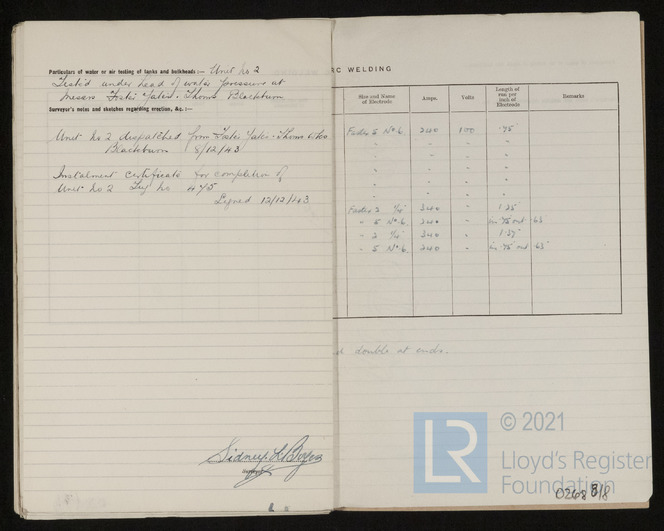 Particulars of water or air testing of tanks and bulkheads:— Unit No 2
Tested under head of water pressure at
Messrs Foster Yates & Thoms Blackburn
Surveyor's notes and sketches regarding erection, &c.:—
Unit No 2 dispatched from Foster Yates & Thoms
Blackburn 8/12/43
Instalment Certificate for completion of
Unit No 2 Tug No
Signed 12/12/43
Sidney
Surveyor
RC WELDING
Size and Name of Electrode Amps. Volts Length of run per inch of Electrode Remarks
5 No 6 240 100 .75
" " "
" " "
" " "
" " "
" " "
2 340 " 1.25
" 5 No 6. 240 " in .75 out .63
" 2 340 "
" 5 No 6. 240 " in .75 out .63
double at ends.
LR
© 2021
Lloyd's Register
Foundation